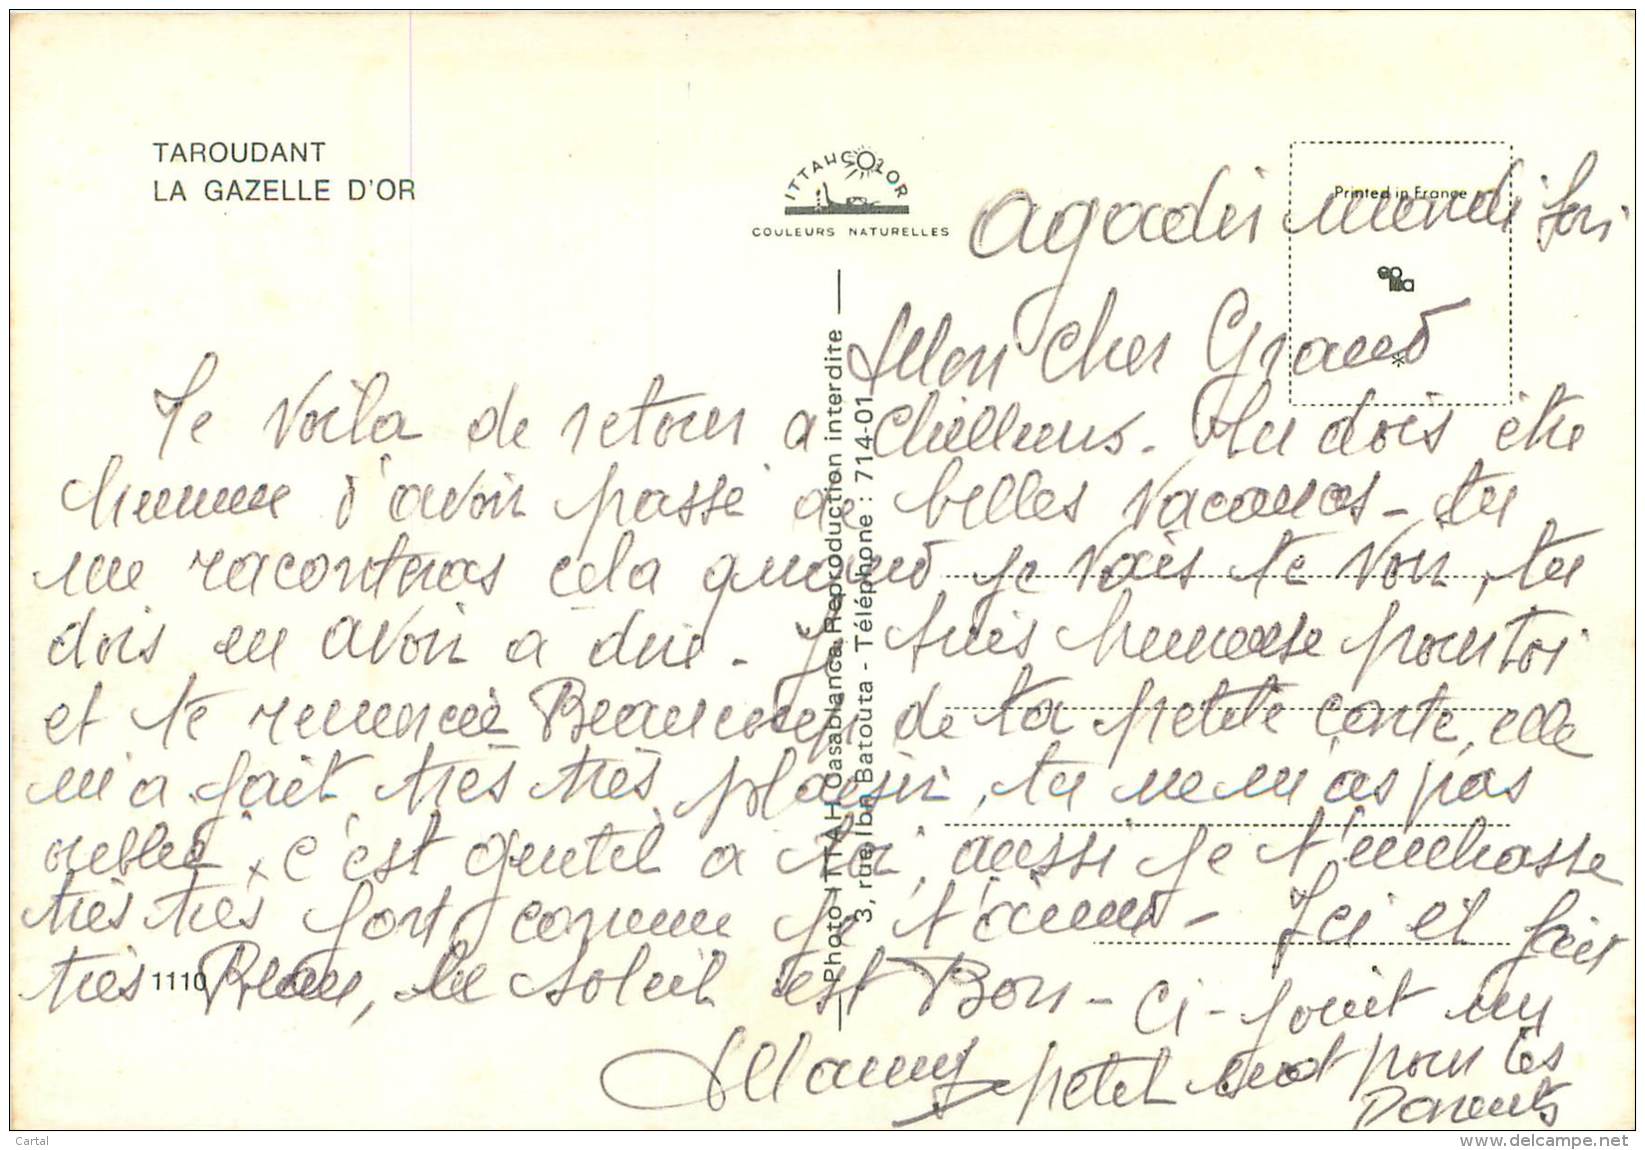 TAROUDANT
LA GAZELLE D'OR
ITTAHCOLOR
COULEURS NATURELLES
Printed in France
Agadir mardi soir
Mon Cher Grand
Te voila de retour a Chelleuns. Tu dois être
heureux d'avoir passé de belles vacances - tu
me raconteras cela quand je vais te voir, tu
dois en avoir a dire - Je suis heureuse pour toi
et te remercie Beaucoup de ta petite carte, elle
m'a fait très très plaisir, tu ne m'as pas
oubliée, c'est gentil a toi, aussi je t'embrasse
très très fort comme je t'aime - Ici il fait
très Beau, le soleil est Bon - Ci-joint un
petit mot pour les
Parents
Mamy
1110
Photo ITTAH Casablanca, Reproduction interdite
3, rue Ibn Batouta - Téléphone : 714-01
Cartal
www.delcampe.net